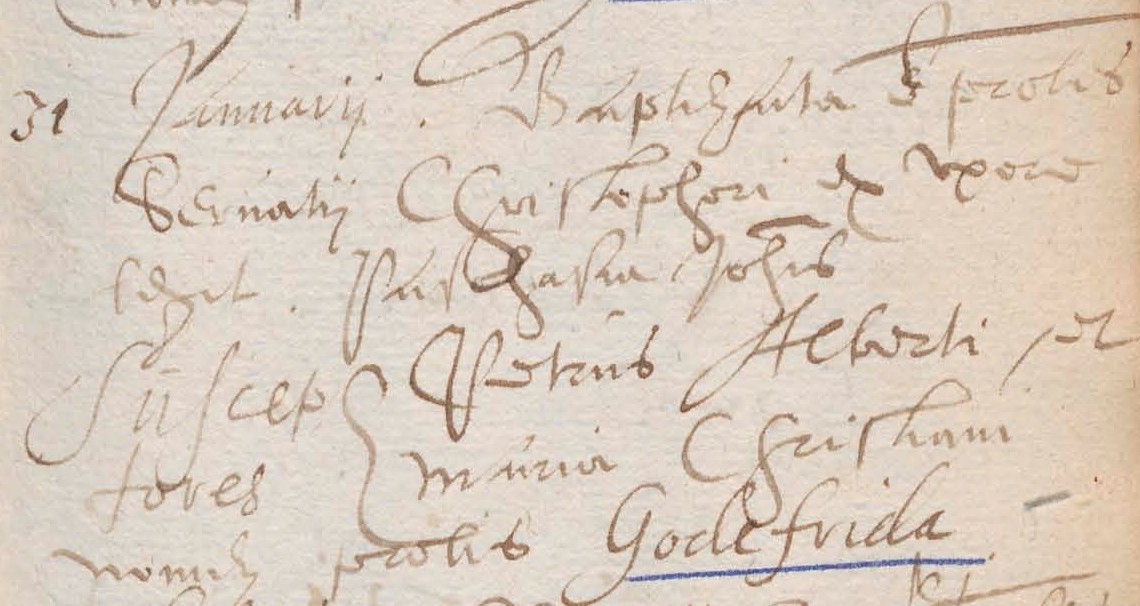 31 Januarij . Baptizata ẽ prolis
Servatij Christophori ex uxore
legit . Paschasia Joh̃is
Suscep Petrus Alberti et
tores Maria Christiani
nomen prolis Godefrida